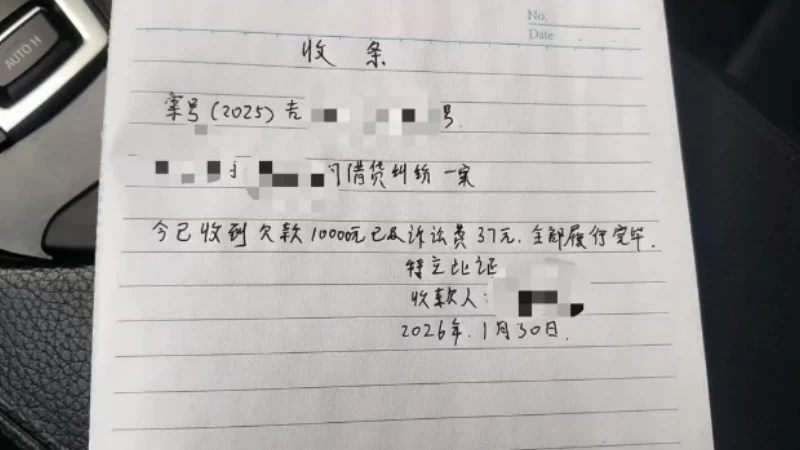 AUTO H
No.
Date
收条
案号(2025)吉 号.
间借贷纠纷一案
今已收到欠款1000元已及诉讼费37元.全部履行完毕.
特立此证
收款人:
2026年.1月30日.